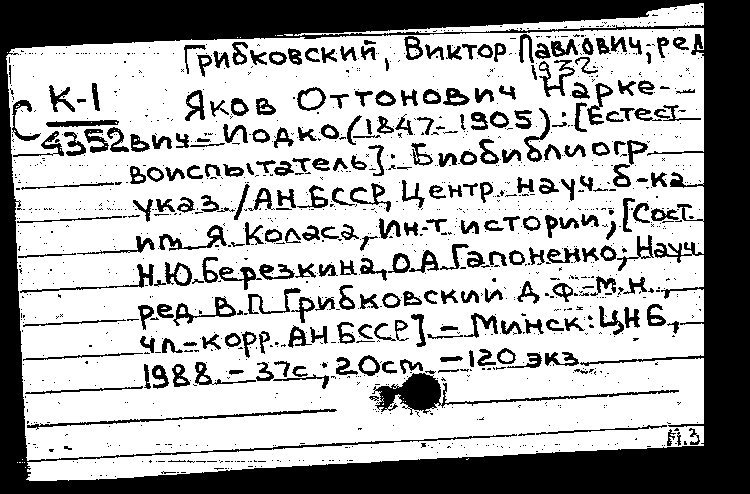 Грибковский, Виктор Павлович, ред
1932
С К-1 Яков Оттонович Нарке-
4352 вич-Иодко (1847-1905): [Естест-
воиспытатель]: Биобиблиогр
указ. / АН БССР, Центр. науч б-ка
им Я. Коласа, Ин-т истории; [Сост.
Н.Ю.Березкина, О.А.Гапоненко; Науч.
ред. В.П Грибковский д.ф-м.н.,
чл.-корр. АН БССР]. - Минск: ЦНБ,
1988. - 37с; 20см - 120 экз
М.З